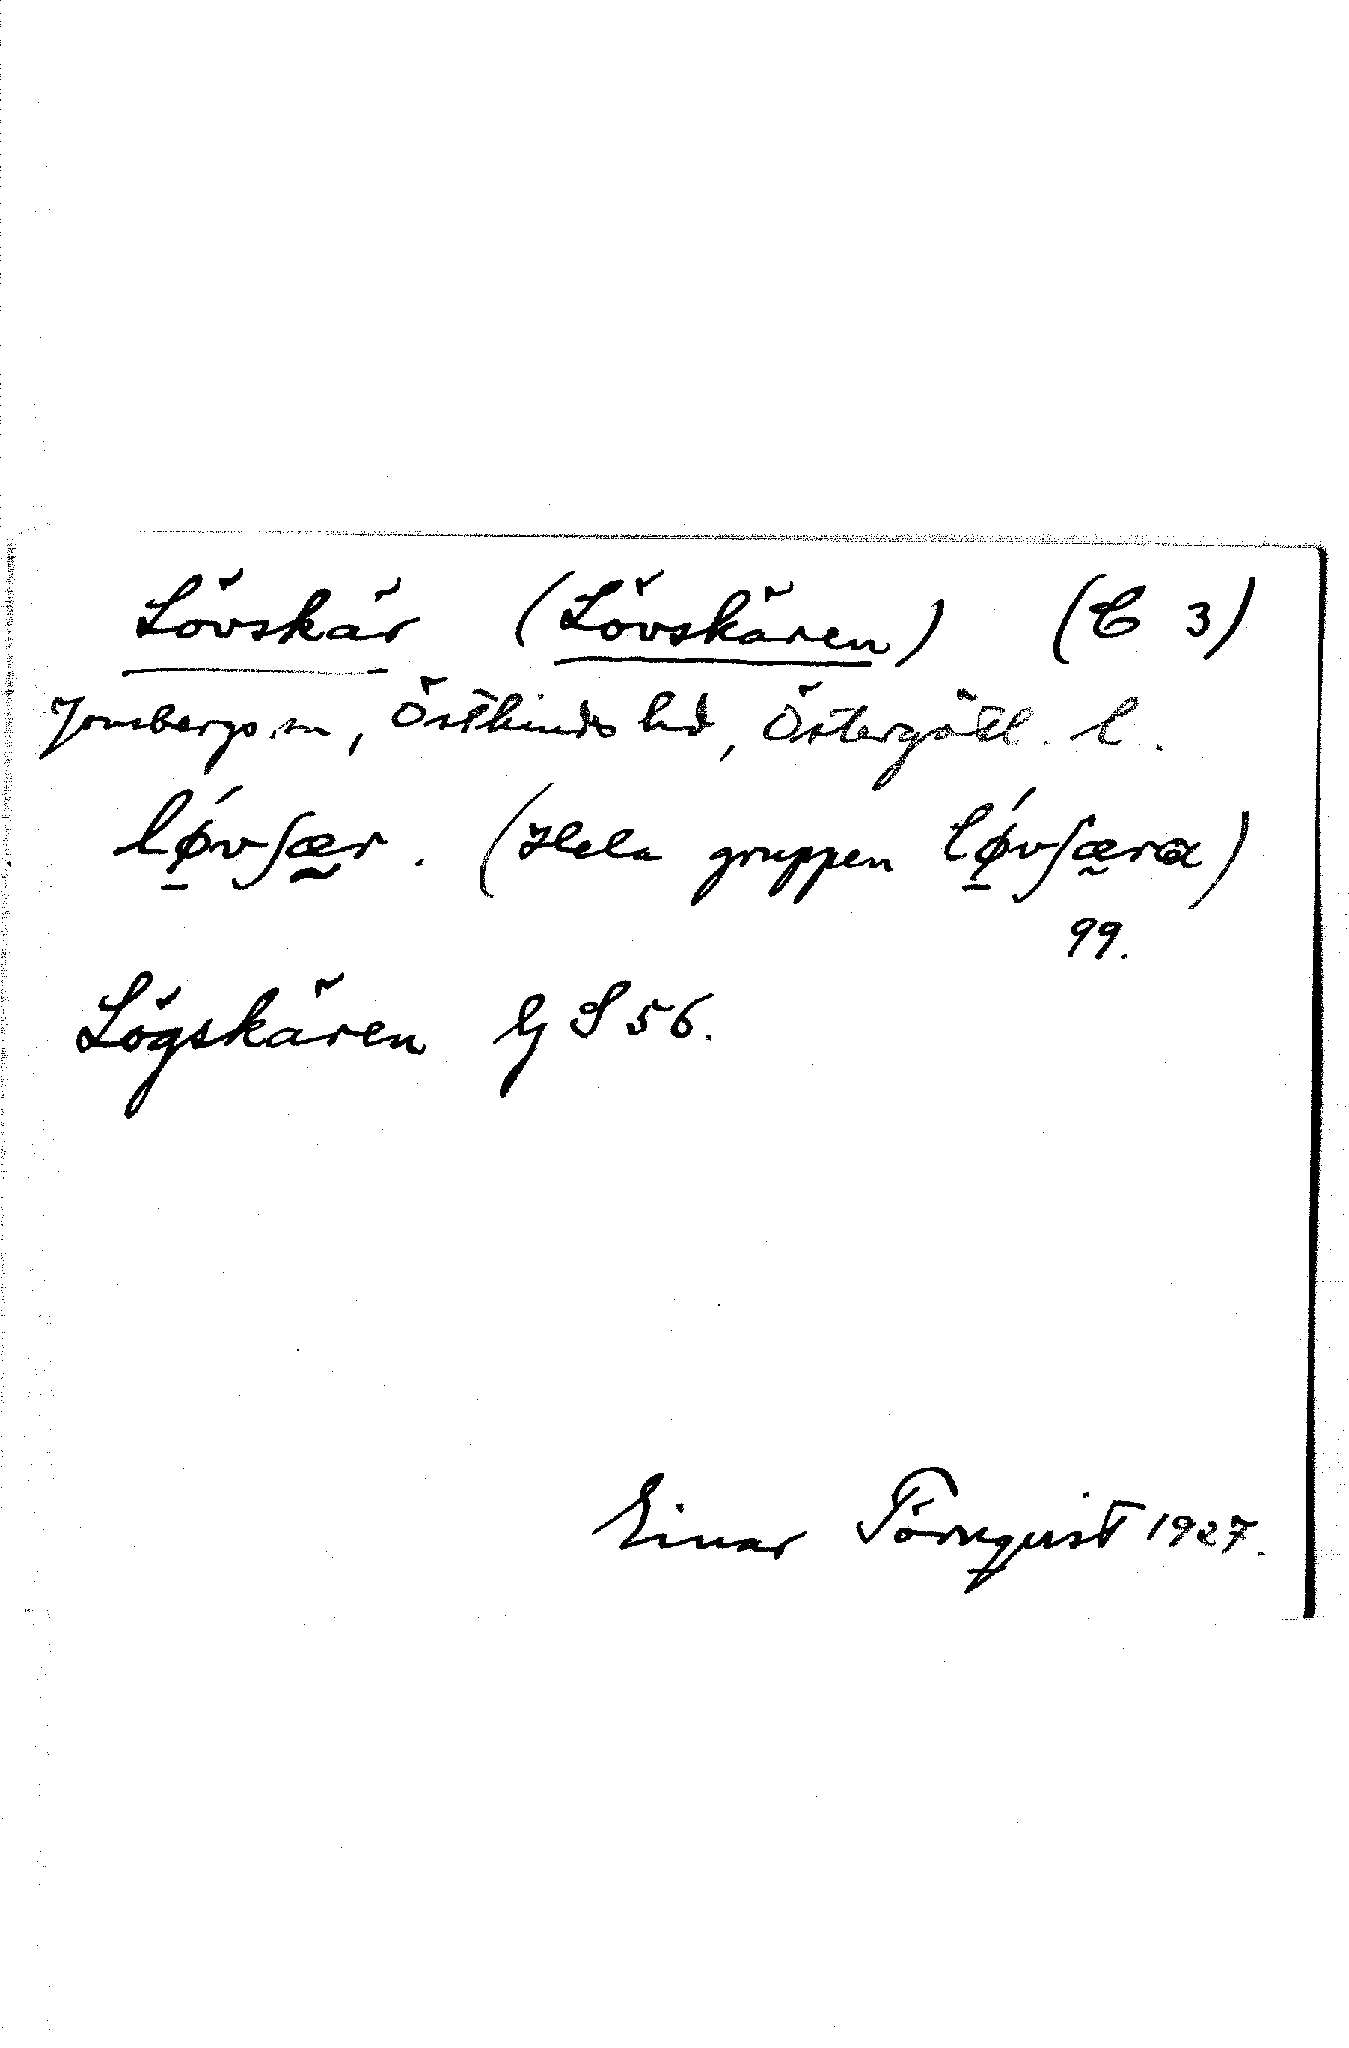 Lövskär (Lövskären) (C 3)
Jonsbergs sn, Östkinds hd, Östergötl. l.
lǿ̱vʃæ̰r. (Hela gruppen lǿ̱vʃæ̰ra)
99.
Lögskären G S 56.
Einar Törnquist 1927.